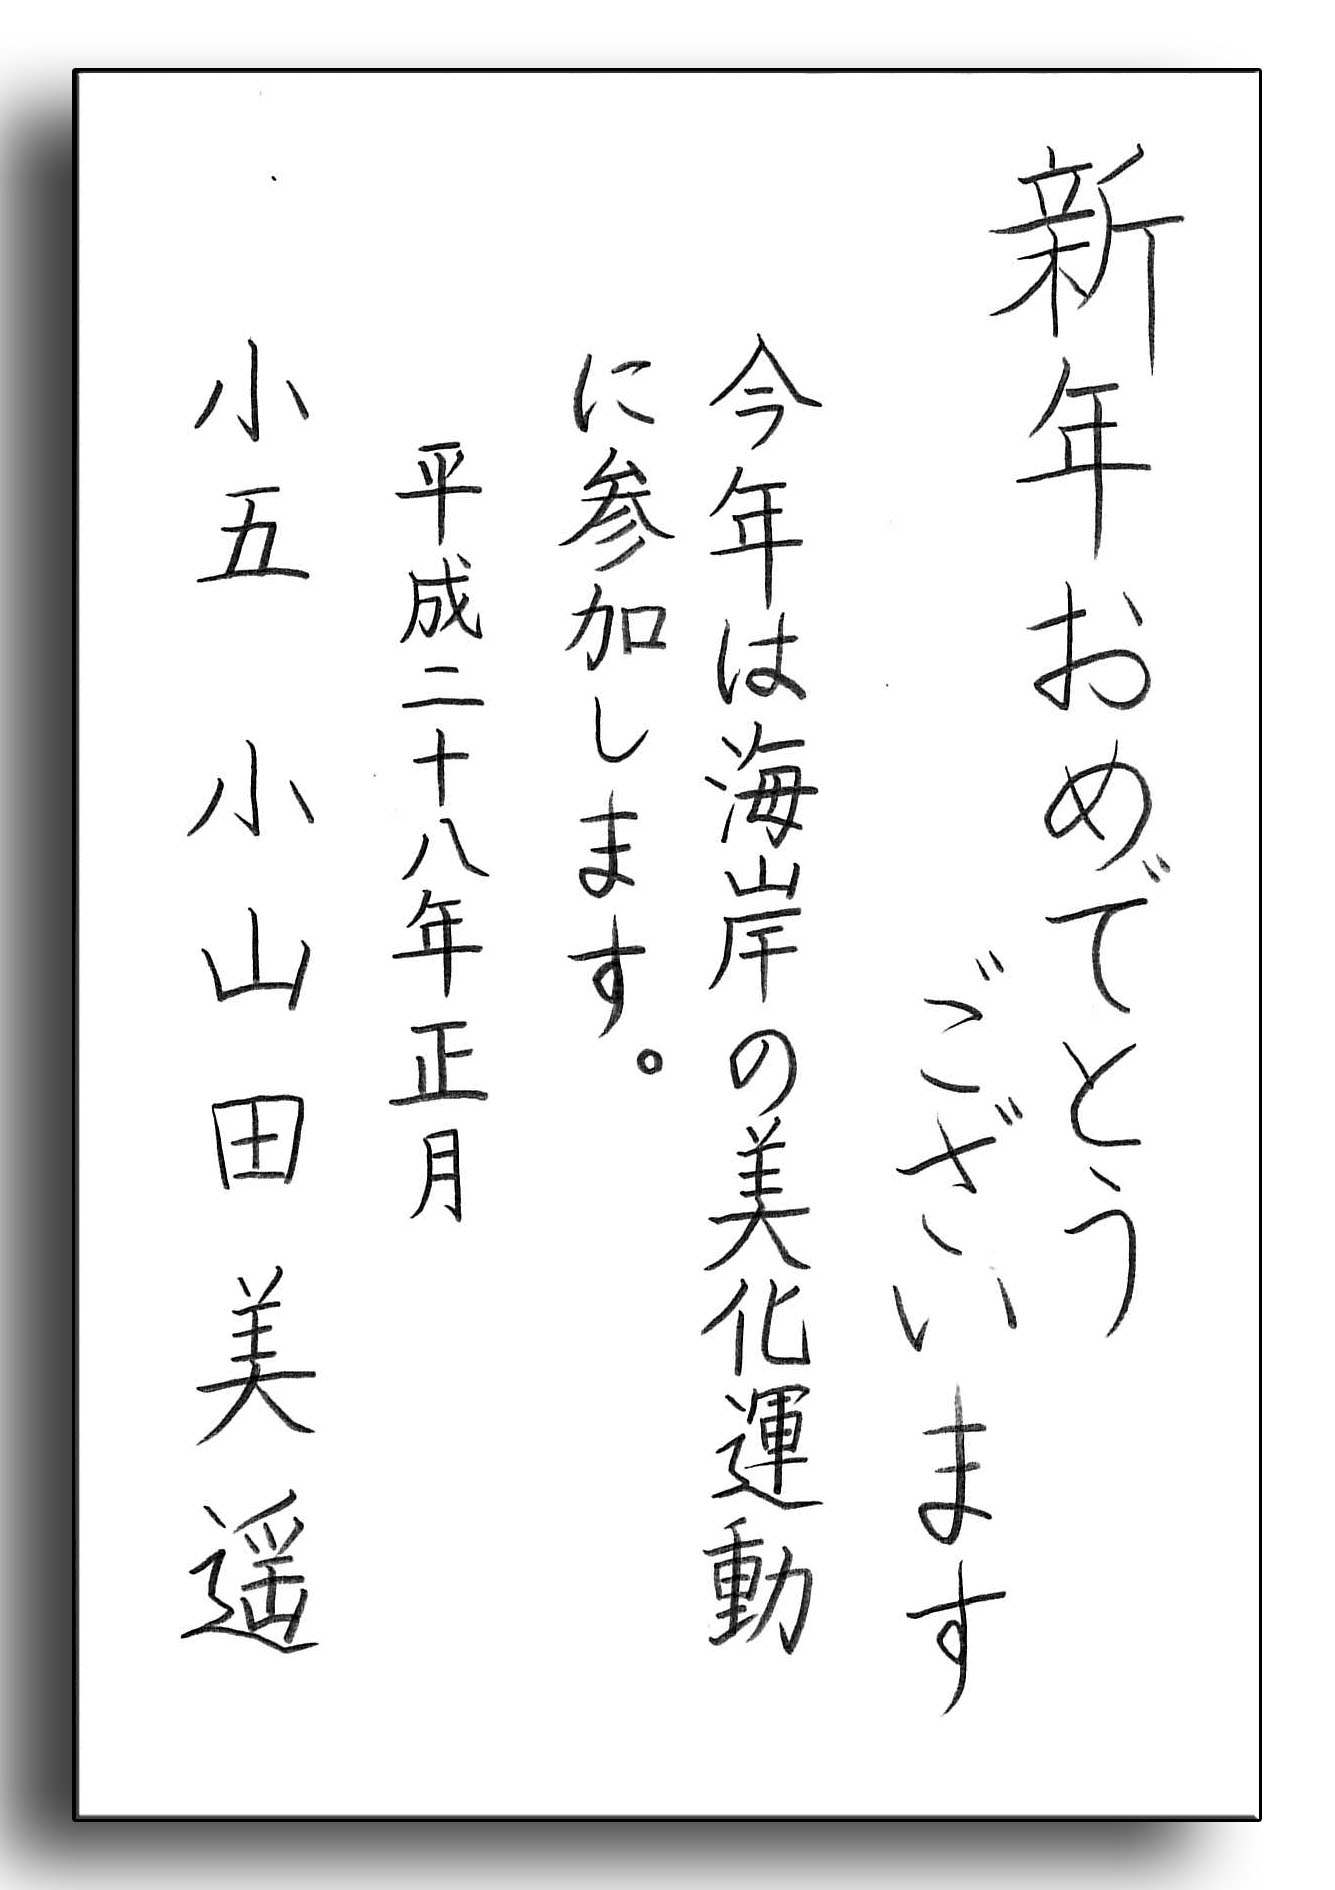 新年おめでとう
ございます
今年は海岸の美化運動
に参加します。
平成二十八年正月
小五 小山田美遥